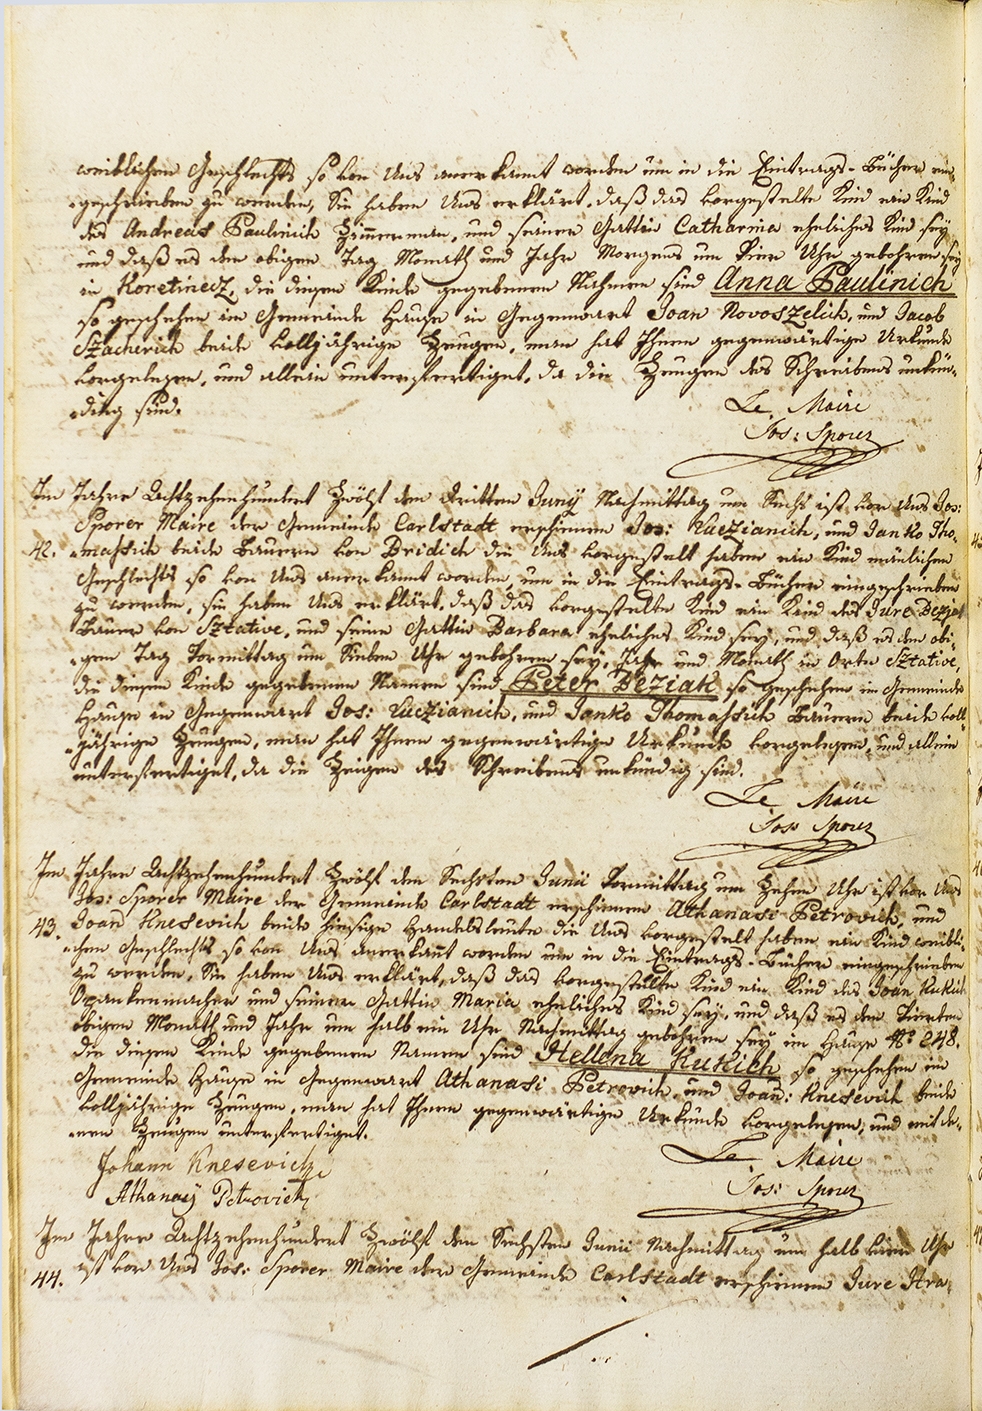 weiblichen Geschlechts so von Uns anerkannt worden um in die Eintrags-Bücher ein-
-geschrieben zu werden, Sie haben Uns erklärt, daß das vorgestelte Kind ein Kind
des Andreas Paulinich Zimmerman, und seiner Gattin Catharina eheliches Kind sey
und daß es den obigen Tag Monath und Jahr Morgens um Vier Uhr gebohren sey
in Koretinecz, die diesem Kinde gegebenen Nahmen sind Anna Paulinich
so geschehen im Gemeinde Hause in Gegenwart Joan Novoszelich, und Jacob
Szacherich beide volljährige Zeugen, man hat Ihnen gegenwärtige Urkunde
vorgelesen, und allein unterfertiget, da die Zeugen des Schreibens unkün-
-dig sind.
Le Maire
Jos: Sporer
Im Jahre Achtzehenhundert Zwölf den Dritten Juny Nachmittag um Sechs ist vor Uns Jos:
Sporer Maire der Gemeinde Carlstadt erschienen Jos: Vuczianich, und Janko Tho-
42. -massich beide Bauern von Dridich die Uns vorgestelt haben ein Kind mänlichen
Geschlechts so von Uns anerkannt worden, um in die Eintrags-Bücher eingeschrieben
zu werden, sie haben Uns erklärt, daß das vorgestelte Kind ein Kind des Jure
Bauer von Sztative, und seine Gattin Barbara eheliches Kind sey, und daß es den obi-
-gen Tag Vormittag um Sieben Uhr gebohren sey, Jahr und Monath in Orte Sztative,
die diesem Kinde gegebenen Namen sind Peter Deziak so geschehen im Gemeinde
Hause in Gegenwart Jos: Vuczianich, und Janko Thomassich Bauern beide voll-
-jährige Zeugen, man hat Ihnen gegenwärtige Urkunde vorgelesen, und allein
unterfertiget, da die Zeigen des Schreibens unkündig sind.
Le Maire
Jos Sporer
Im Jahre Achtzehenhundert Zwölf den Sechsten Junii Vormittag um Zehen Uhr ist vor Uns
Jos: Sporer Maire der Gemeinde Carlstadt erschienen Athanasi Petrovich, und
43. Joan Knesevich beide hiesige Handelsleute die Uns vorgestelt haben ein Kind weibli-
-chen Geschlechts so von Uns anerkant worden um in die Eintrags-Bücher eingeschrieben
zu werden, Sie haben Uns erklärt, daß das vorgestellte Kind ein Kind des Joan Kukich
Opankenmacher und seiner Gattin Maria eheliches Kind sey, und daß es den Vierten
obigen Monath und Jahr um halb ein Uhr Nachmittag gebohren sey im Hause No 248.
die diesem Kinde gegebenen Namen sind Hellena Kukich so geschehen im
Gemeinde Hause in Gegenwart Athanasi Petrovich, und Joan: Knesevich beide
volljährige Zeugen, man hat Ihnen gegenwärtige Urkunde vorgelesen, und mit de-
-nen Zeugen unterfertiget.
Johann Knesevich
Le Maire
Athanasy Petrovich
Jos: Sporer
Im Jahre Achtzehenhundert Zwölf den Sechsten Junii Nachmittag um halb Uhr
44. ist vor Uns Jos: Sporer Maire der Gemeinde Carlstadt erschienen Jure Stra-